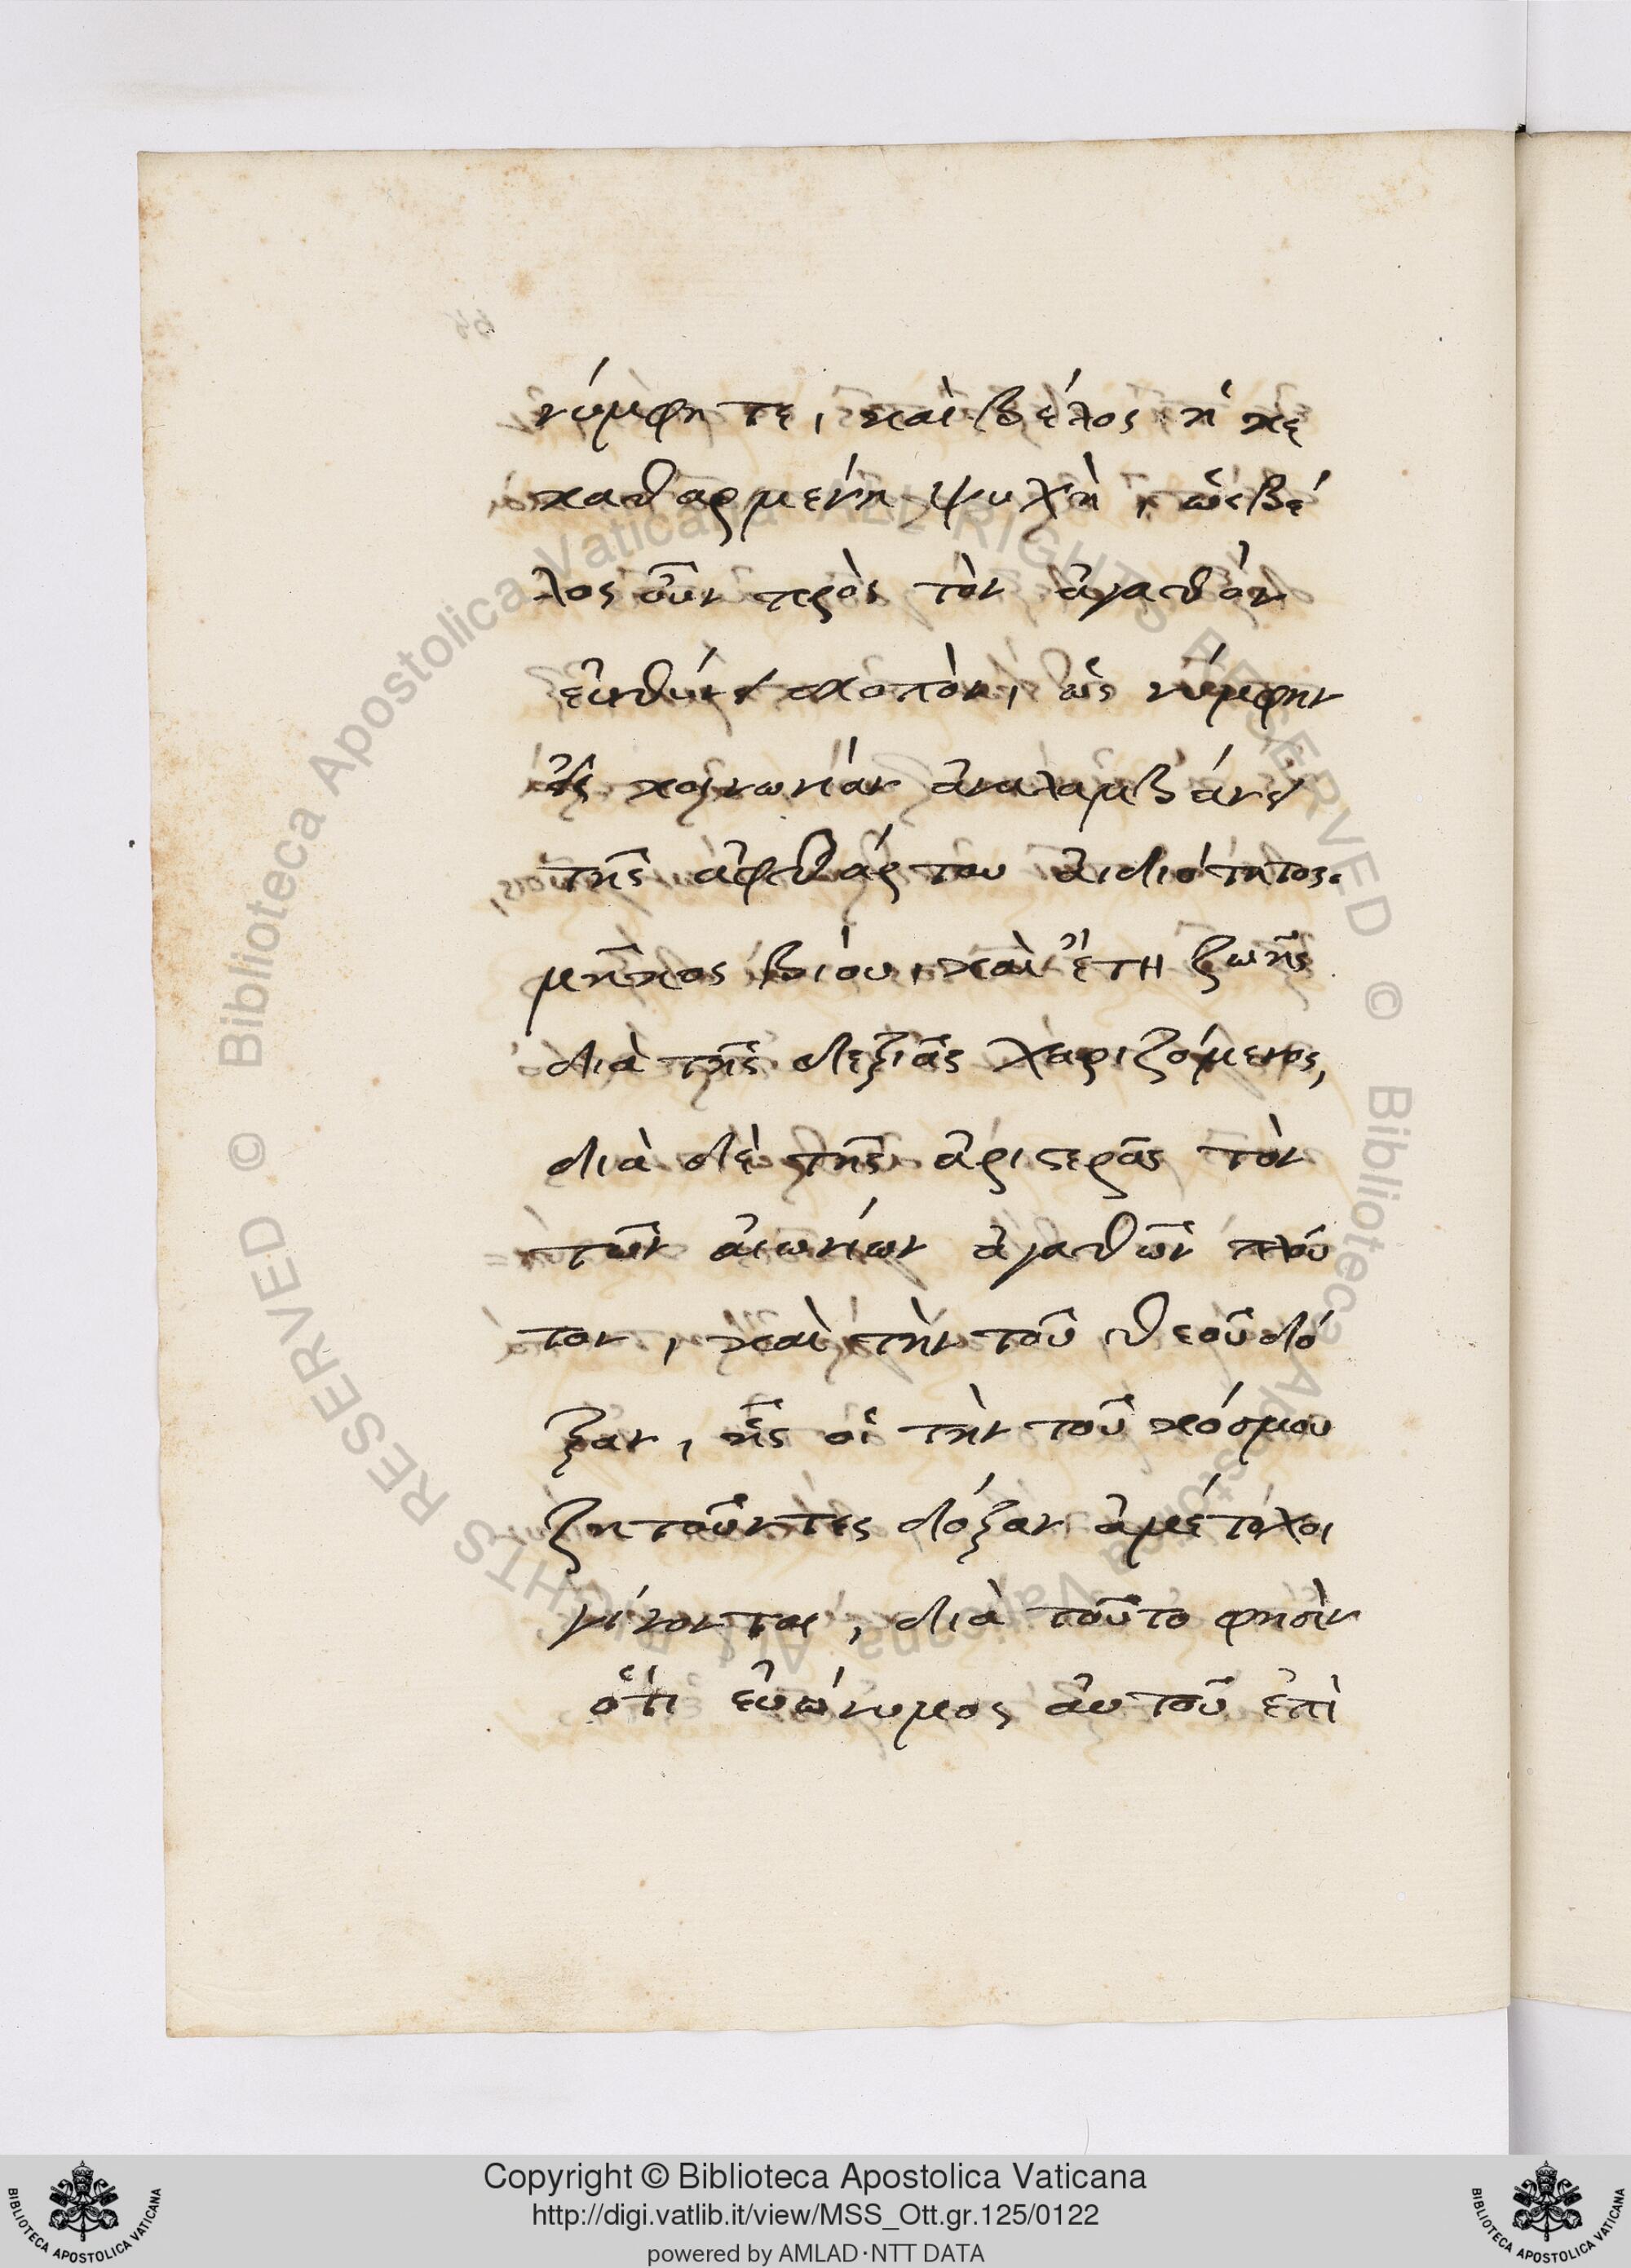 νύμφη τε, καὶ βέλος ἡ κε
καθαρμένη ψυχὴ, ὡς βέ
λος οὖν πρὸς τὸν ἀγαθὸν
εὐθύνει σκοπὸν, ὡς νύμφην
εἰς κοινωνίαν ἀναλαμβάνει
τῆς ἀφθάρτου ἀιδιότητος.
μῆκος βίου, καὶ ἔτη ζωῆς
διὰ τῆς δεξιᾶς χαριζόμενος,
διὰ δὲ τῆς ἀριστερᾶς τὸν
τῶν αἰωνίων ἀγαθῶν πλοῦ
τον, καὶ τὴν τοῦ θεοῦ δό
ξαν, ἧς οἱ τὴν τοῦ κόσμου
ζητοῦντες δόξαν ἀμέτοχοι
γίνονται, διὰ τοῦτο φησὶν
ὅτι εὐώνυμος αὐτοῦ ἐπὶ
Copyright © Biblioteca Apostolica Vaticana
http://digi.vatlib.it/view/MSS_Ott.gr.125/0122
powered by AMLAD·NTT DATA
BIBLIOTECA APOSTOLICA VATICANA
BIBLIOTECA APOSTOLICA VATICANA
© Biblioteca Apostolica Vaticana ALL RIGHTS RESERVED
© Biblioteca Apostolica Vaticana ALL RIGHTS RESERVED